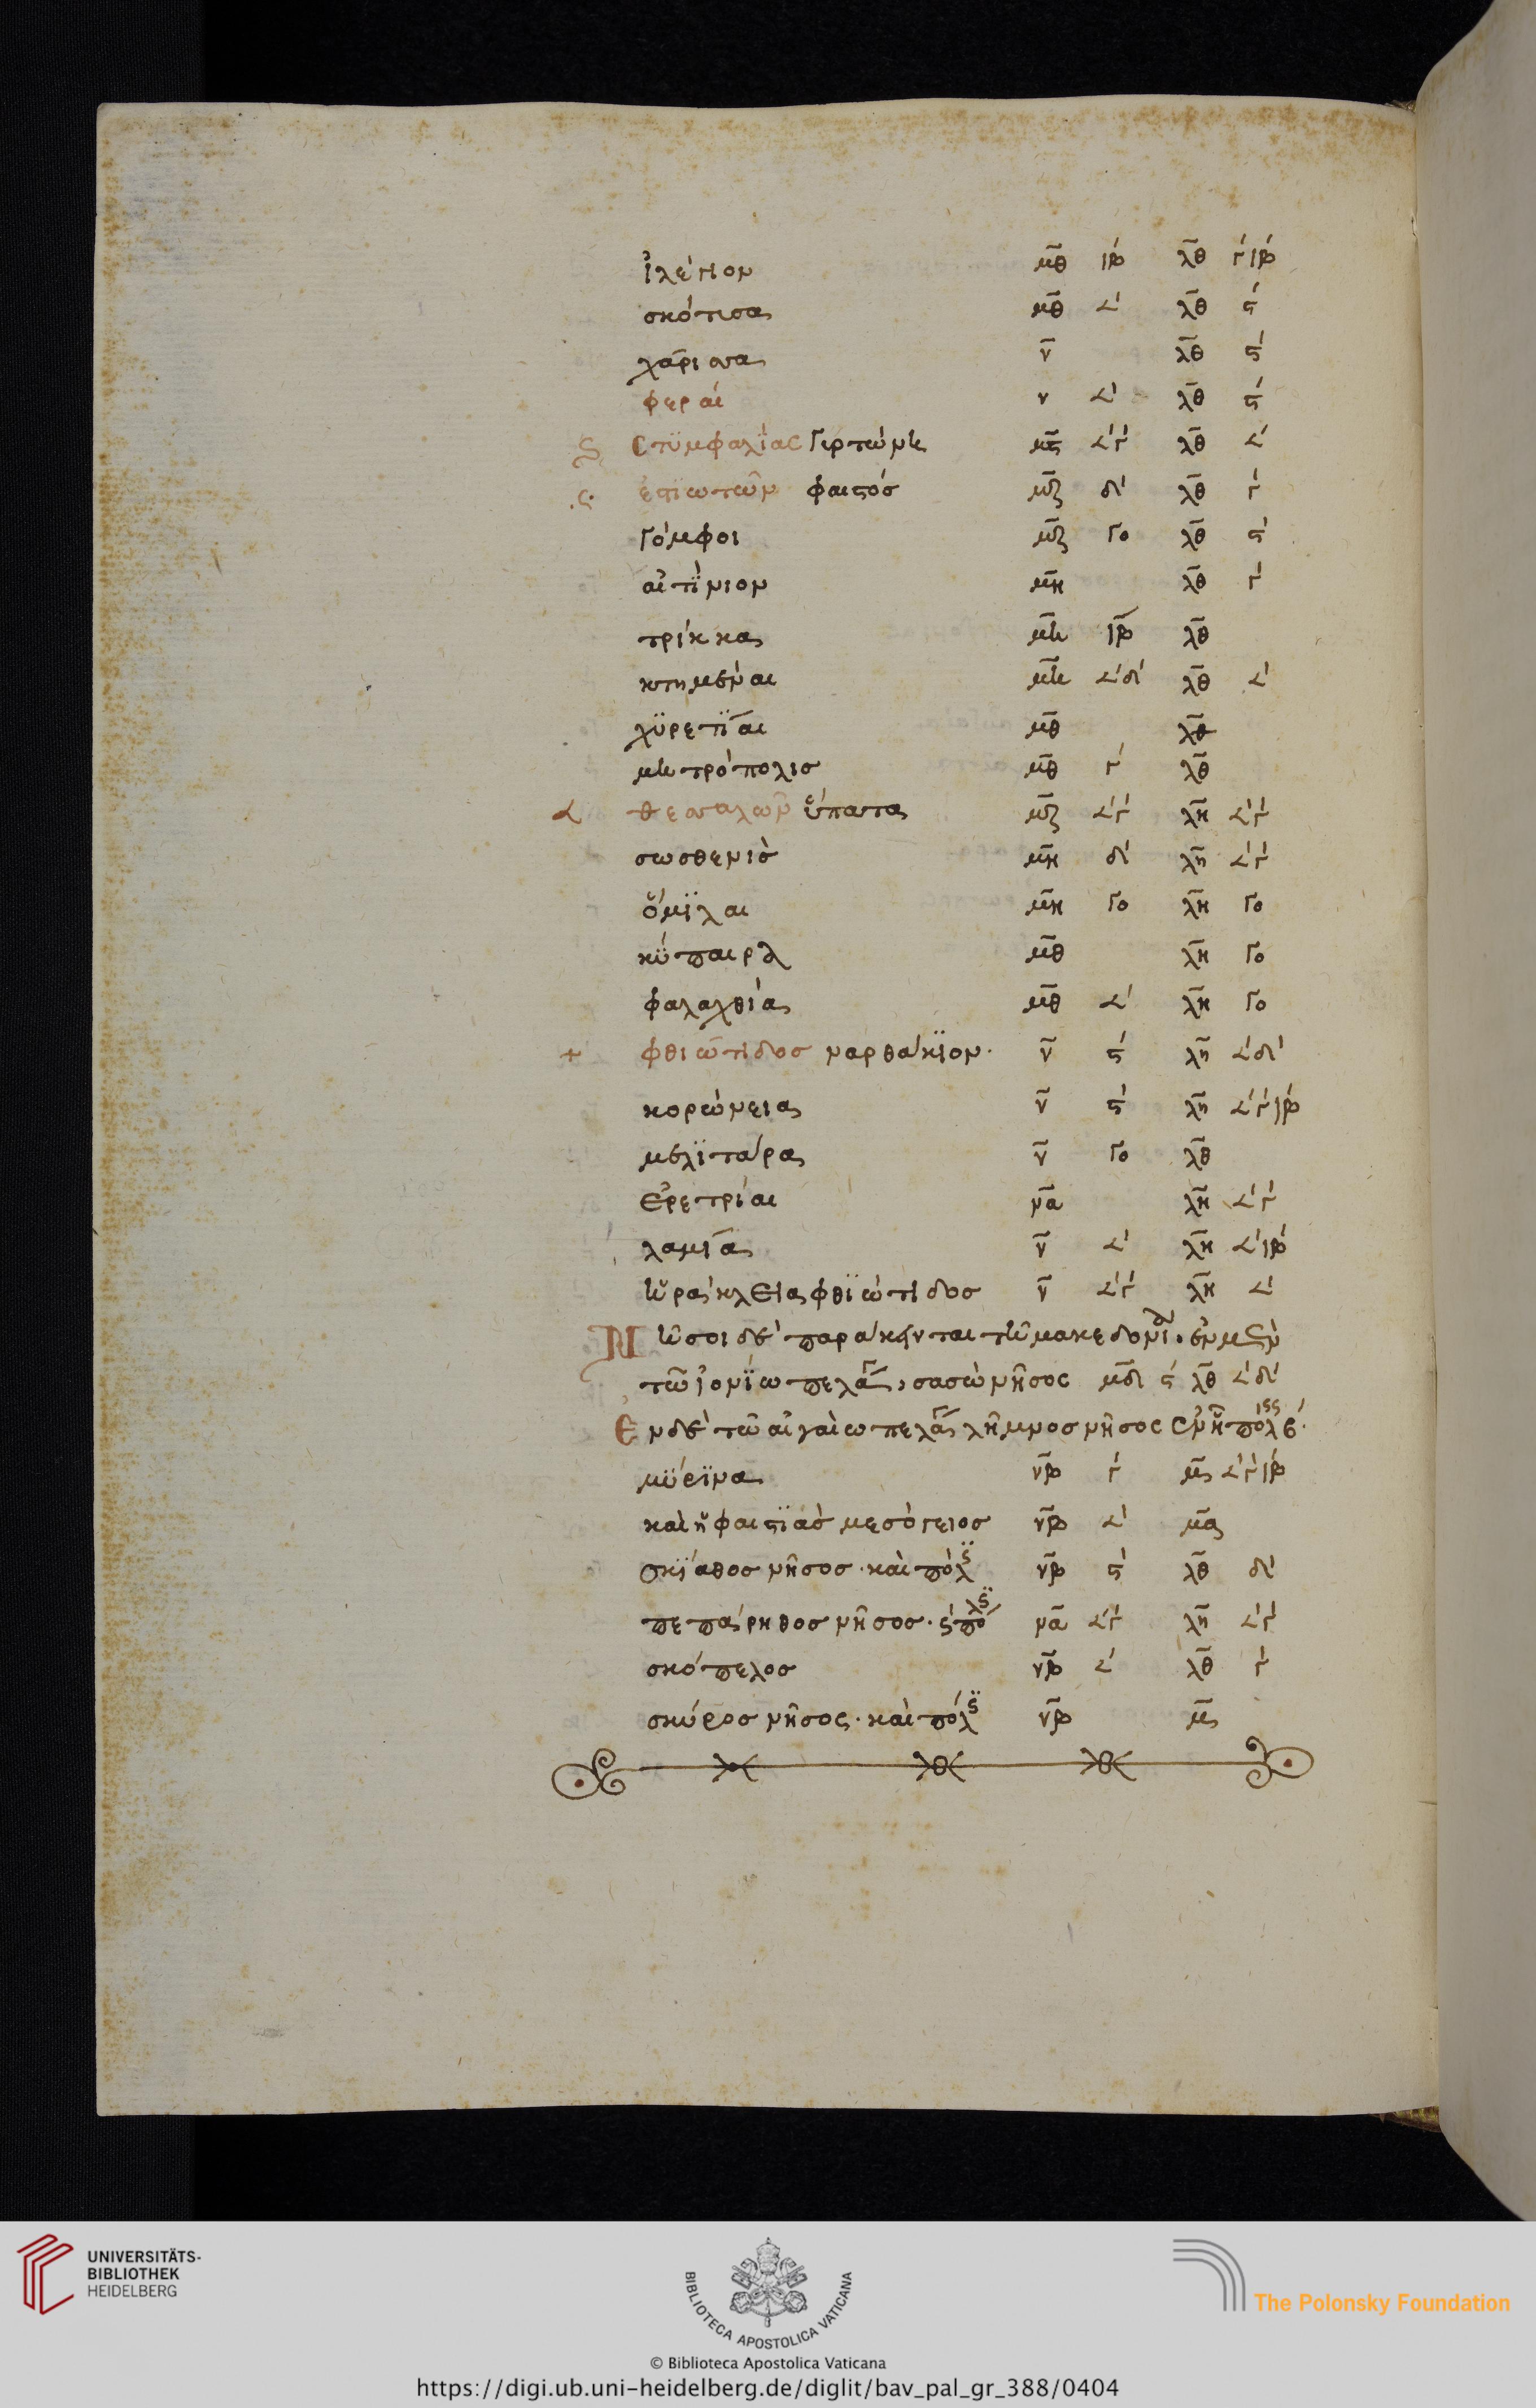 ἰλέγιον μθ ιβ λθ γιβ
σκότισα μθ 𐅵 λθ ς
χάρισσα ν λθ ς
φεραί ν 𐅵 λθ ς
ς Στϋμφαλίας Γυρτώνη μς 𐅵γ λθ 𐅵
ς ἐστϊωτῶν φαιστόσ μζ δ λθ γ
Γόμφοι μζ γο λθ ς
αἰτΐνιον μη λθ γ
τρίκκα μη ιβ λθ
κτημέναι μη 𐅵δ λθ 𐅵
χϋρετΐαι μθ λθ
μητρόπολισ μθ γ λθ
θεσσαλῶν ὕπατα μζ 𐅵γ λη 𐅵γ
σωσθενισ μη δ λη 𐅵γ
ὅμϊλαι μη γο λη γο
κύπαιρα μθ λη γο
φαλαχθία μθ 𐅵 λη γο
φθιώτιδοσ ναρθάκϊον ν ς λη 𐅵δ
κορώνεια ν ς λη 𐅵γιβ
μελϊτάρα ν γο λθ
Ἐρετρίαι να λη 𐅵γ
λαμία ν 𐅵 λη 𐅵ιβ
ἡράκλεια φθϊώτιδοσ ν 𐅵γ λη 𐅵
Νῆσοι δὲ παράκεινται τῆ μακεδονία. ἐν μὲν
τῶ ἰονίω πελάγ, σασὼ νῆσος μδ ς λθ 𐅵δ
Ἐν δὲ τῶ αἰγαίω πελάγ λῆμνοσ νῆσος ἐν ἧ πόλεις β
μϋρϊνα νβ γ μ 𐅵γιβ
καὶ ἡφαιστϊὰσ μεσόγειοσ νβ 𐅵 μα
σκΐαθοσ νῆσοσ. καὶ πόλις νβ ς λθ δ
πεπάρηθοσ νῆσοσ. ς πόλις να 𐅵γ λη 𐅵γ
σκόπελοσ νβ 𐅵 λθ γ
σκύροσ νῆσος. καὶ πόλις νβ μ
UNIVERSITÄTS-
BIBLIOTHEK
HEIDELBERG
BIBLIOTECA APOSTOLICA VATICANA
© Biblioteca Apostolica Vaticana
The Polonsky Foundation
https://digi.ub.uni-heidelberg.de/diglit/bav_pal_gr_388/0404